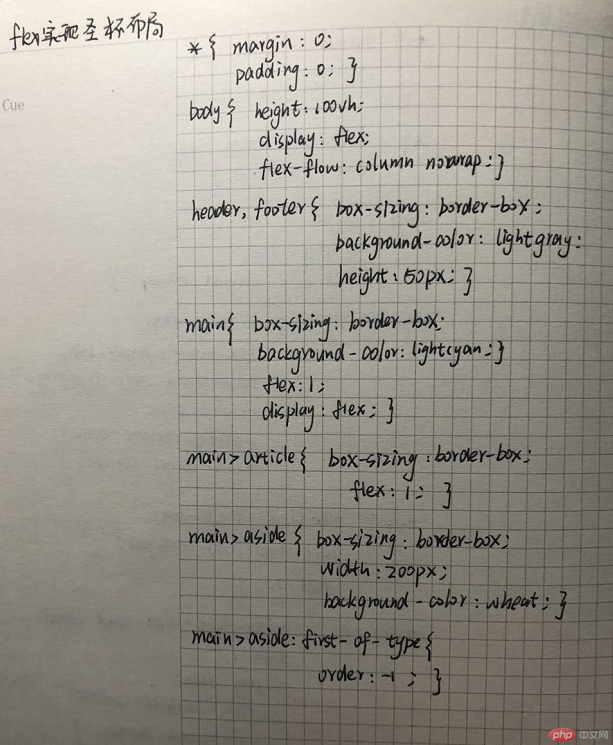 flex实现圣杯布局
*{ margin: 0;
padding: 0; }
Cue
body{ height: 100vh;
display: flex;
flex-flow: column nowrap; }
header, footer{ box-sizing: border-box;
background-color: lightgray;
height: 50px; }
main{ box-sizing: border-box;
background-color: lightcyan; }
flex: 1;
display: flex; }
main>article{ box-sizing: border-box;
flex: 1; }
main>aside{ box-sizing: border-box;
width: 200px;
background-color: wheat; }
main>aside: first-of-type{
order: -1; }
php 中文网